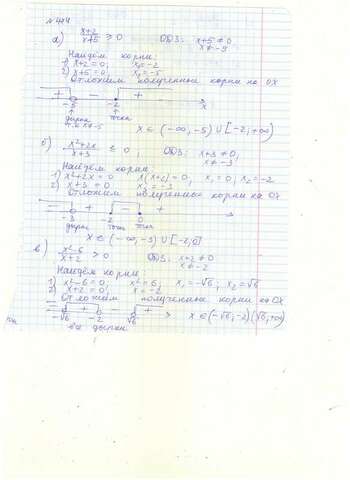 № 414
а) x+2/x+5 ≥ 0 ОДЗ: x+5 ≠ 0
x ≠ -5
Найдём корни:
1) x+2=0; x₁=-2
2) x+5=0; x₂=-5
Отложим полученные корни на OX
+ - +
-5 -2 x
дырка точка
т.к. x≠-5
x ∈ (-∞,-5) ∪ [-2;+∞)
б) x²+2x/x+3 ≤ 0 ОДЗ: x+3 ≠ 0;
x ≠ -3
Найдём корни:
1) x²+2x=0 x(x+2)=0, x₁=0; x₂=-2
2) x+3=0 x₃=-3
Отложим полученные корни на OX
- + - +
-3 -2 0
дырка точка точка
x ∈ (-∞,-3) ∪ [-2;0]
в) x²-6/x+2 > 0 ОДЗ: x+2 ≠ 0
x ≠ -2
Найдём корни:
1) x²-6=0; x²=6; x₁=-√6; x₂=√6
2) x+2=0; x=-2
Отложим полученные корни на OX
- + - +
-√6 -2 √6 x ∈ (-√6;-2)(√6;+∞)
все дырки